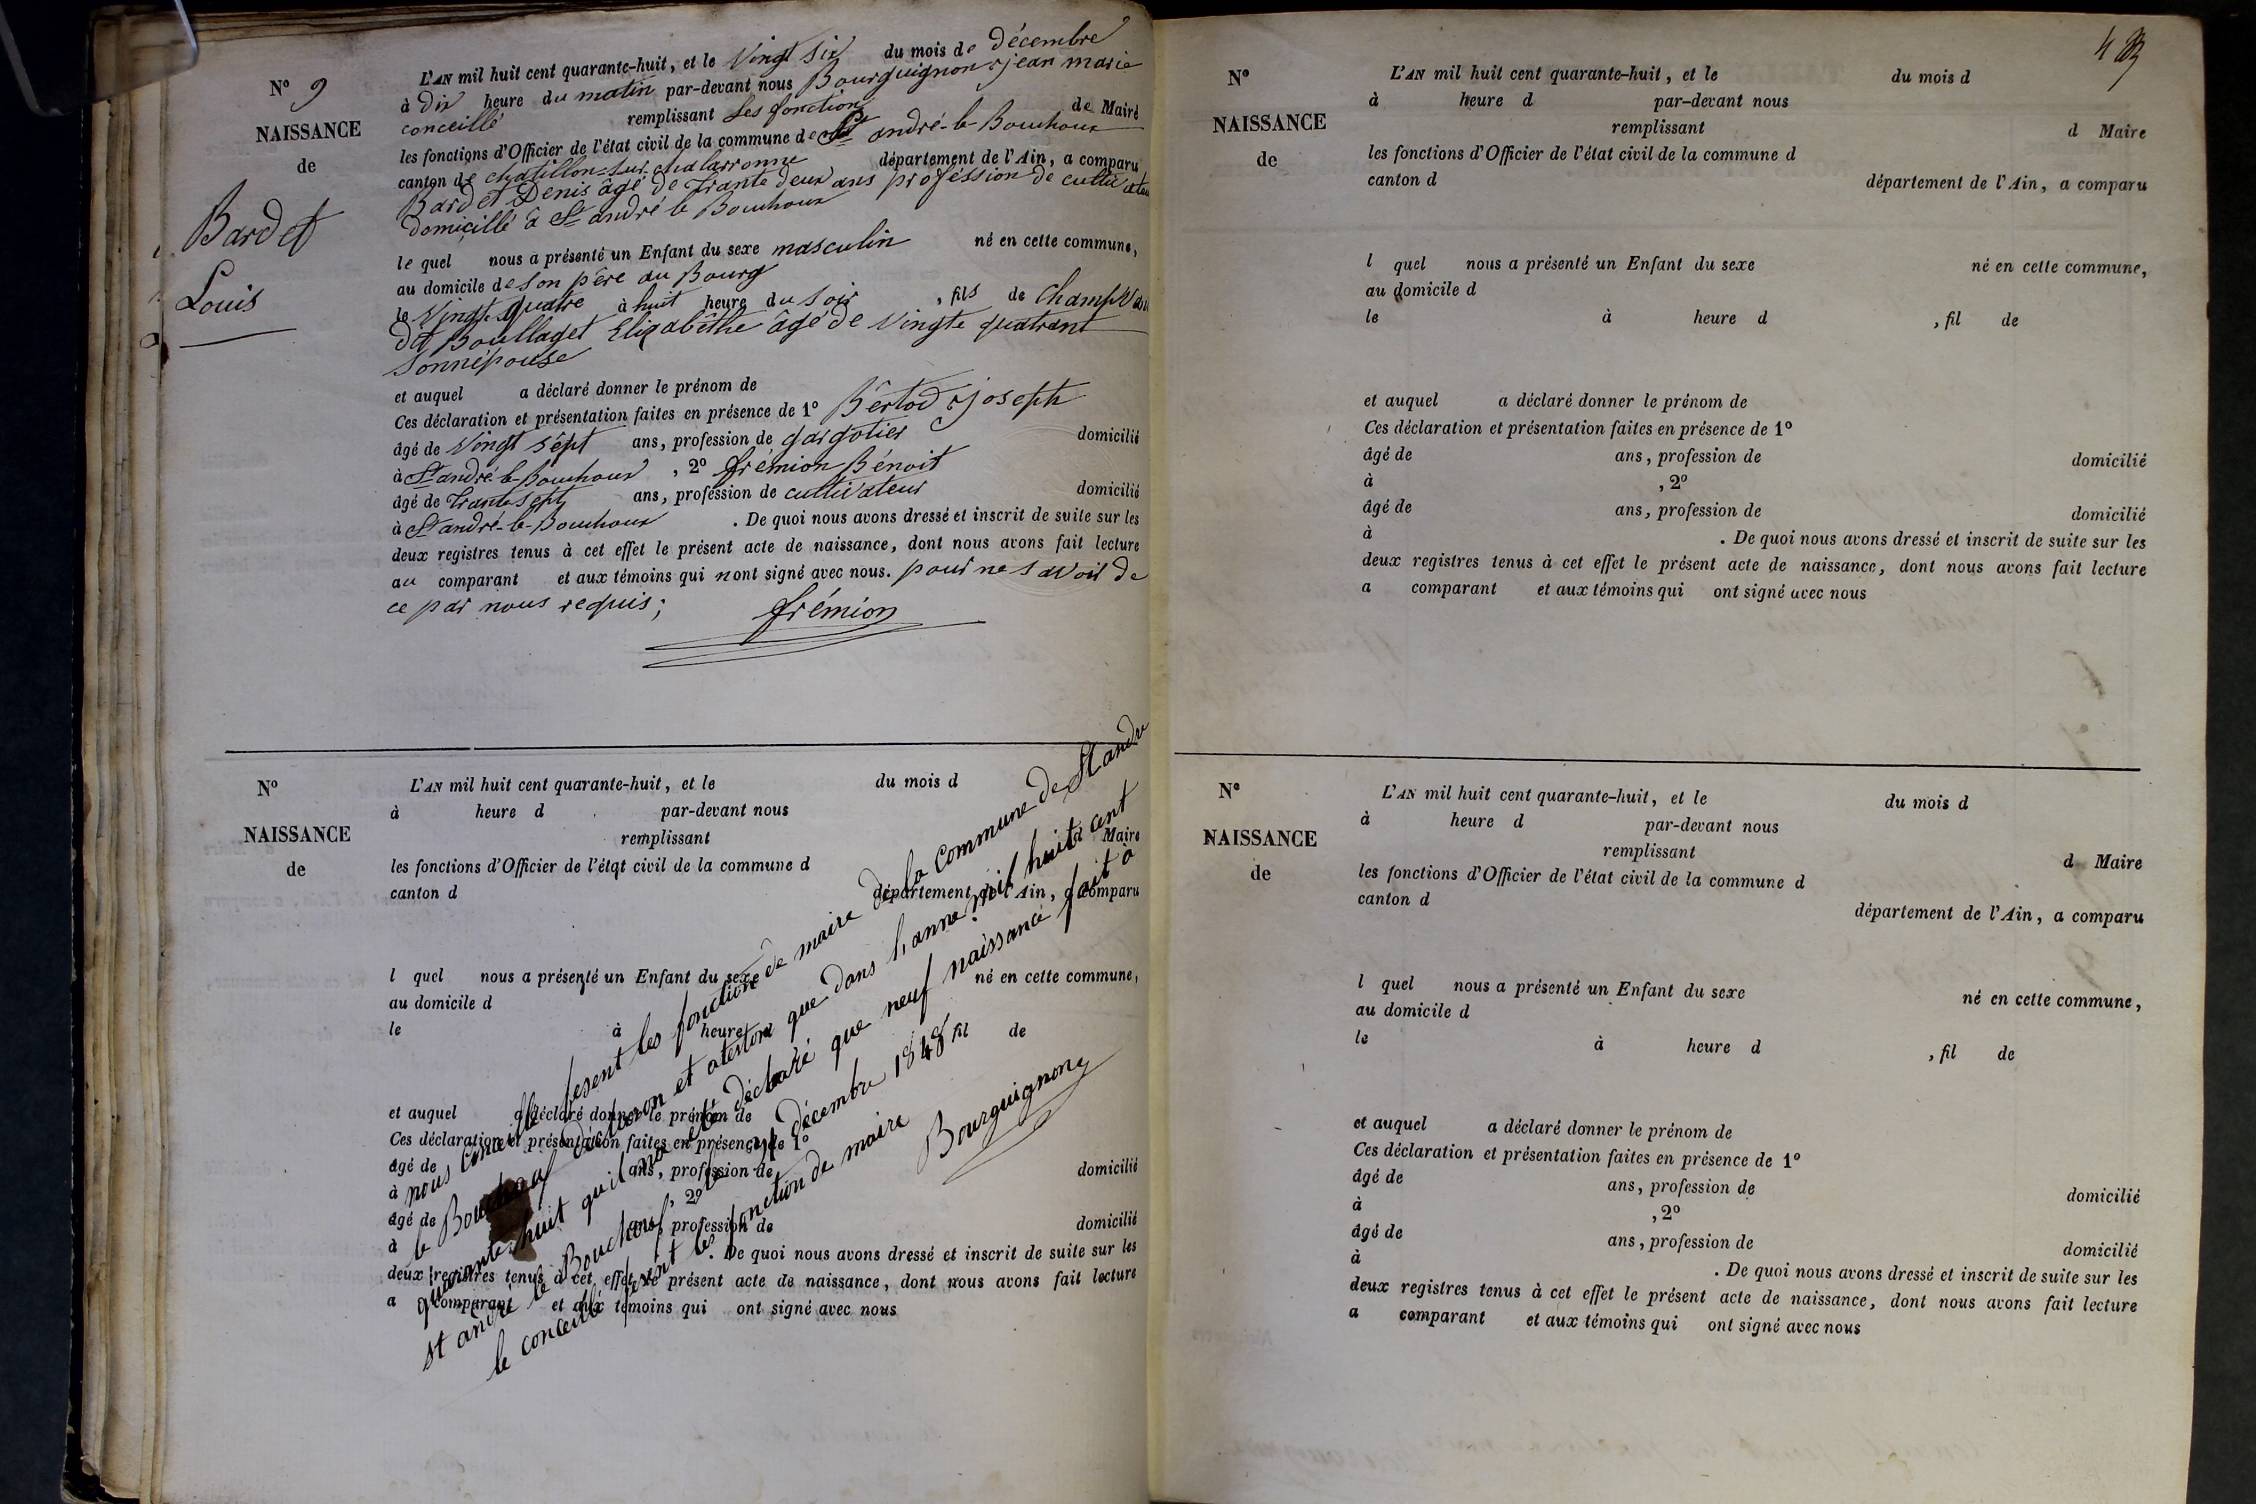 N° 9
NAISSANCE
de
Bardet
Louis
L'AN mil huit cent quarante-huit, et le Vingt six du mois de décembre
à dix heure du matin par-devant nous Bourguignon jean marie
conceillé remplissant Les fonction de Maire
les fonctions d'Officier de l'état civil de la commune de St andré-le-Bouchoux
canton de chatillon-sur-chalarronne département de l'Ain, a comparu
Bardet Denis âgé de trante deux ans proféssion de cultivateu
domicillé à St andré le Bouchoux
le quel nous a présenté un Enfant du sexe masculin né en cette commune,
au domicile de son père au Bourg
le Vingt-quatre à huit heure du soir, fils de
dit Boullaget Elizabêthe âgé de Vingte quatrant
sonnépouse
et auquel a déclaré donner le prénom de
Ces déclaration et présentation faites en présence de 1° Bértod joseph
âgé de Vingt sépt ans, profession de gargotier domicilié
à St andré-le-Bouchoux, 2° frémion Bénoit
âgé de trante sept ans, profession de cultivateur domicilié
à St andré-le-Bouchoux. De quoi nous avons dressé et inscrit de suite sur les
deux registres tenus à cet effet le présent acte de naissance, dont nous avons fait lecture
au comparant et aux témoins qui nont signé avec nous. pour ne savoir de
ce par nous requis;
frémion
N°
NAISSANCE
de
L'AN mil huit cent quarante-huit, et le du mois d
à heure d par-devant nous
remplissant d Maire
les fonctions d'Officier de l'état civil de la commune d
canton d département de l'Ain, a comparu
l quel nous a présenté un Enfant du sexe né en cette commune,
au domicile d
le à heure d fil de
et auquel a déclaré donner le prénom de
Ces déclaration et présentation faites en présence de 1°
âgé de ans, profession de domicilié
à , 2°
âgé de ans, profession de domicilié
à . De quoi nous avons dressé et inscrit de suite sur les
deux registres tenus à cet effet le présent acte de naissance, dont nous avons fait lecture
a comparant et aux témoins qui ont signé avec nous
nous conceillé fesent les fonction de maire de la commune de St andre
le Bouchoux et atestons que dans l'anne mil huit cent
quarante huit qu'il déclaré que neuf naissance fait à
st andré le Bouchoux décembre 1848
le conceillé fesent les fonction de maire
Bourguignon
4
N°
NAISSANCE
de
L'AN mil huit cent quarante-huit, et le du mois d
à heure d par-devant nous
remplissant d Maire
les fonctions d'Officier de l'état civil de la commune d
canton d département de l'Ain, a comparu
l quel nous a présenté un Enfant du sexe né en cette commune,
au domicile d
le à heure d , fil de
et auquel a déclaré donner le prénom de
Ces déclaration et présentation faites en présence de 1°
âgé de ans, profession de domicilié
à , 2°
âgé de ans, profession de domicilié
à . De quoi nous avons dressé et inscrit de suite sur les
deux registres tenus à cet effet le présent acte de naissance, dont nous avons fait lecture
a comparant et aux témoins qui ont signé avec nous
N°
NAISSANCE
de
L'AN mil huit cent quarante-huit, et le du mois d
à heure d par-devant nous
remplissant d Maire
les fonctions d'Officier de l'état civil de la commune d
canton d département de l'Ain, a comparu
l quel nous a présenté un Enfant du sexe né en cette commune,
au domicile d
le à heure d , fil de
et auquel a déclaré donner le prénom de
Ces déclaration et présentation faites en présence de 1°
âgé de ans, profession de domicilié
à , 2°
âgé de ans, profession de domicilié
à . De quoi nous avons dressé et inscrit de suite sur les
deux registres tenus à cet effet le présent acte de naissance, dont nous avons fait lecture
a comparant et aux témoins qui ont signé avec nous